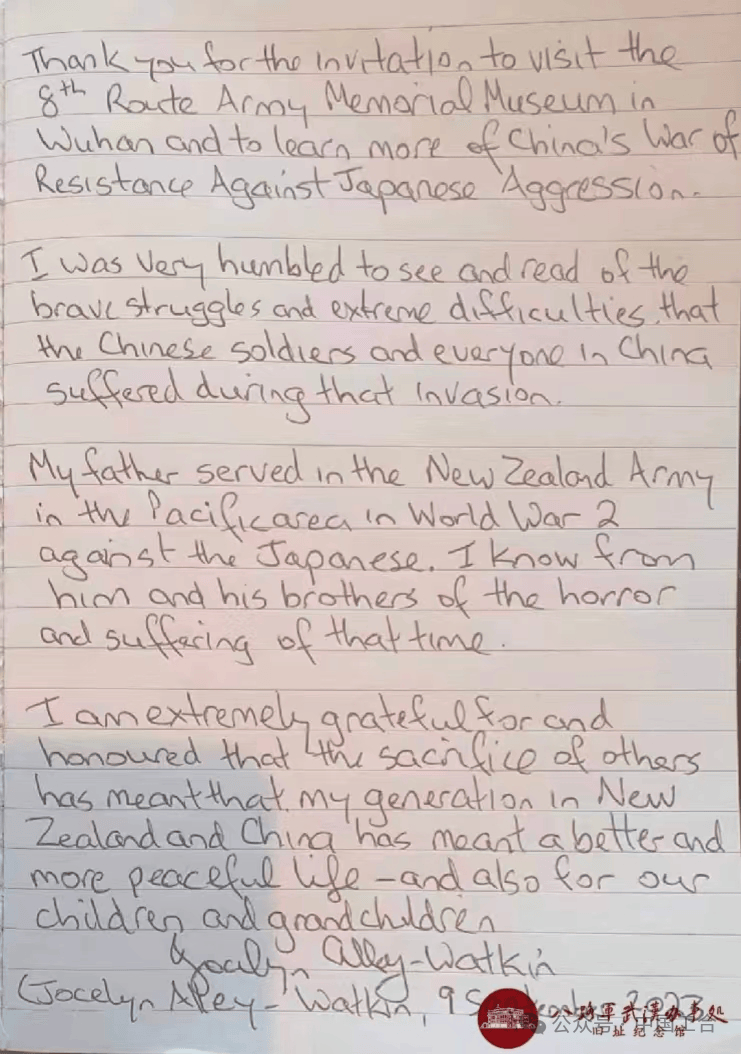 Thank you for the invitation to visit the
8th Route Army Memorial Museum in
Wuhan and to learn more of China's War of
Resistance Against Japanese Aggression.
I was very humbled to see and read of the
brave struggles and extreme difficulties that
the Chinese soldiers and everyone in China
suffered during that invasion.
My father served in the New Zealand Army
in the Pacific area in World War 2
against the Japanese. I know from
him and his brothers of the horror
and suffering of that time.
I am extremely grateful for and
honoured that the sacrifice of others
has meant that my generation in New
Zealand and China has meant a better and
more peaceful life - and also for our
children and grandchildren
Jocelyn Alley-Watkin
(Jocelyn Alley-Watkin, 9 September 2023
八路軍武漢办事处
旧址纪念馆
公众号